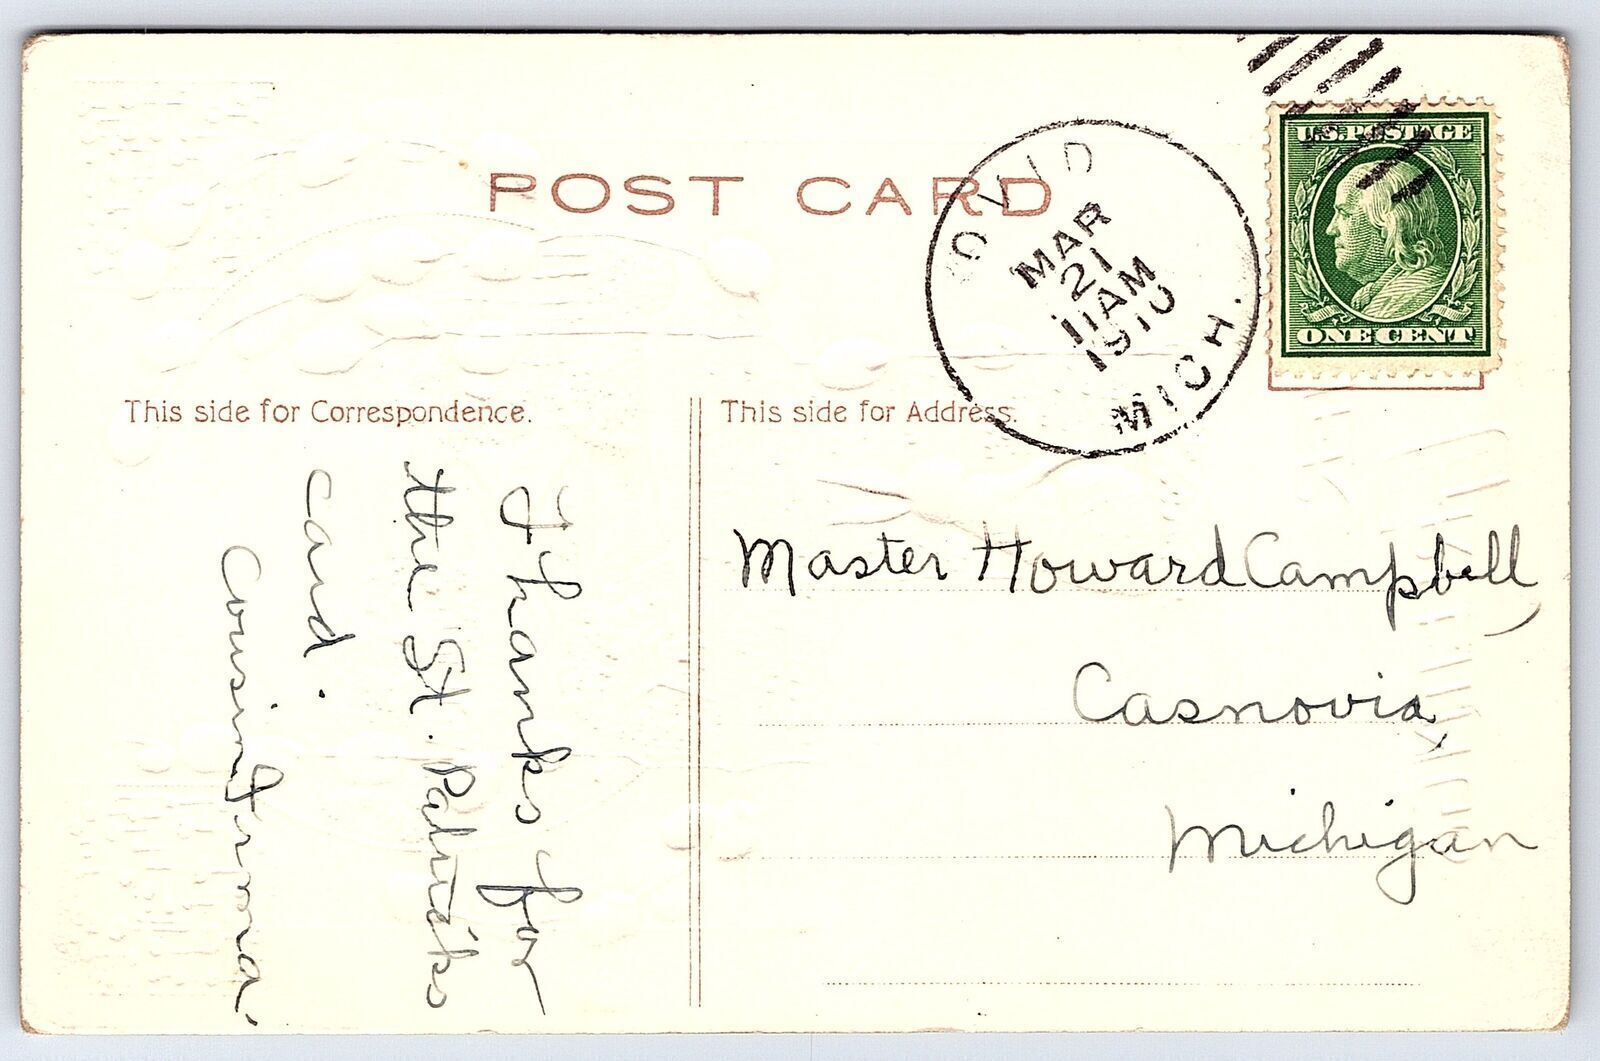 POST CARD
MAR
21
11 AM
1910
MICH.
U.S. POSTAGE
ONE CENT
This side for Correspondence.
This side for Address.
Thanks for
the St. Patricks
card.
Cousin Irma.
Master Howard Campbell,
Casnovia,
Michigan